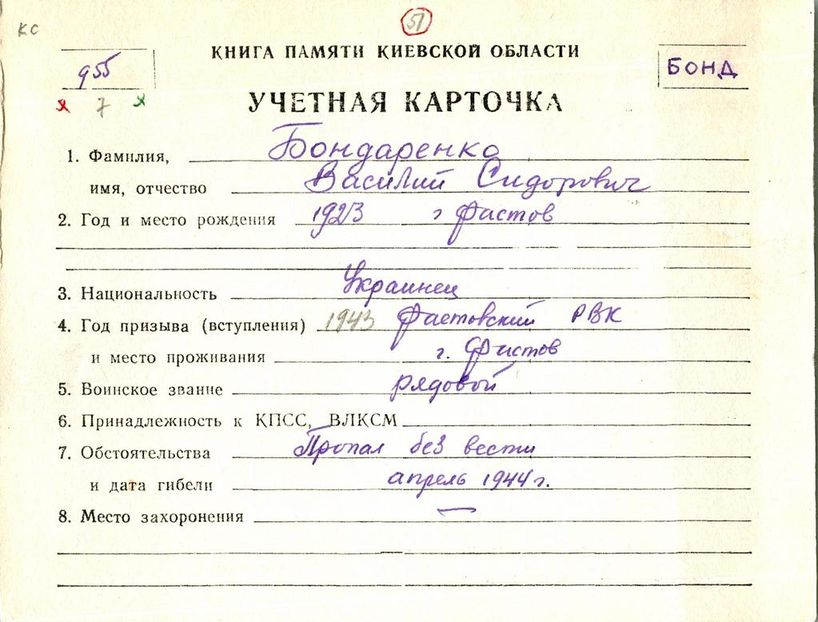 КС
51
КНИГА ПАМЯТИ КИЕВСКОЙ ОБЛАСТИ
955
БОНД
Я 7 Я
УЧЕТНАЯ КАРТОЧКА
1. Фамилия, Бондаренко
имя, отчество Василий Сидорович
2. Год и место рождения 1923 г Фастов
3. Национальность Украинец
4. Год призыва (вступления) 1943 Фастовский РВК
и место проживания г. Фастов
5. Воинское звание рядовой
6. Принадлежность к КПСС, ВЛКСМ
7. Обстоятельства Пропал без вести
и дата гибели апрель 1944 г.
8. Место захоронения —